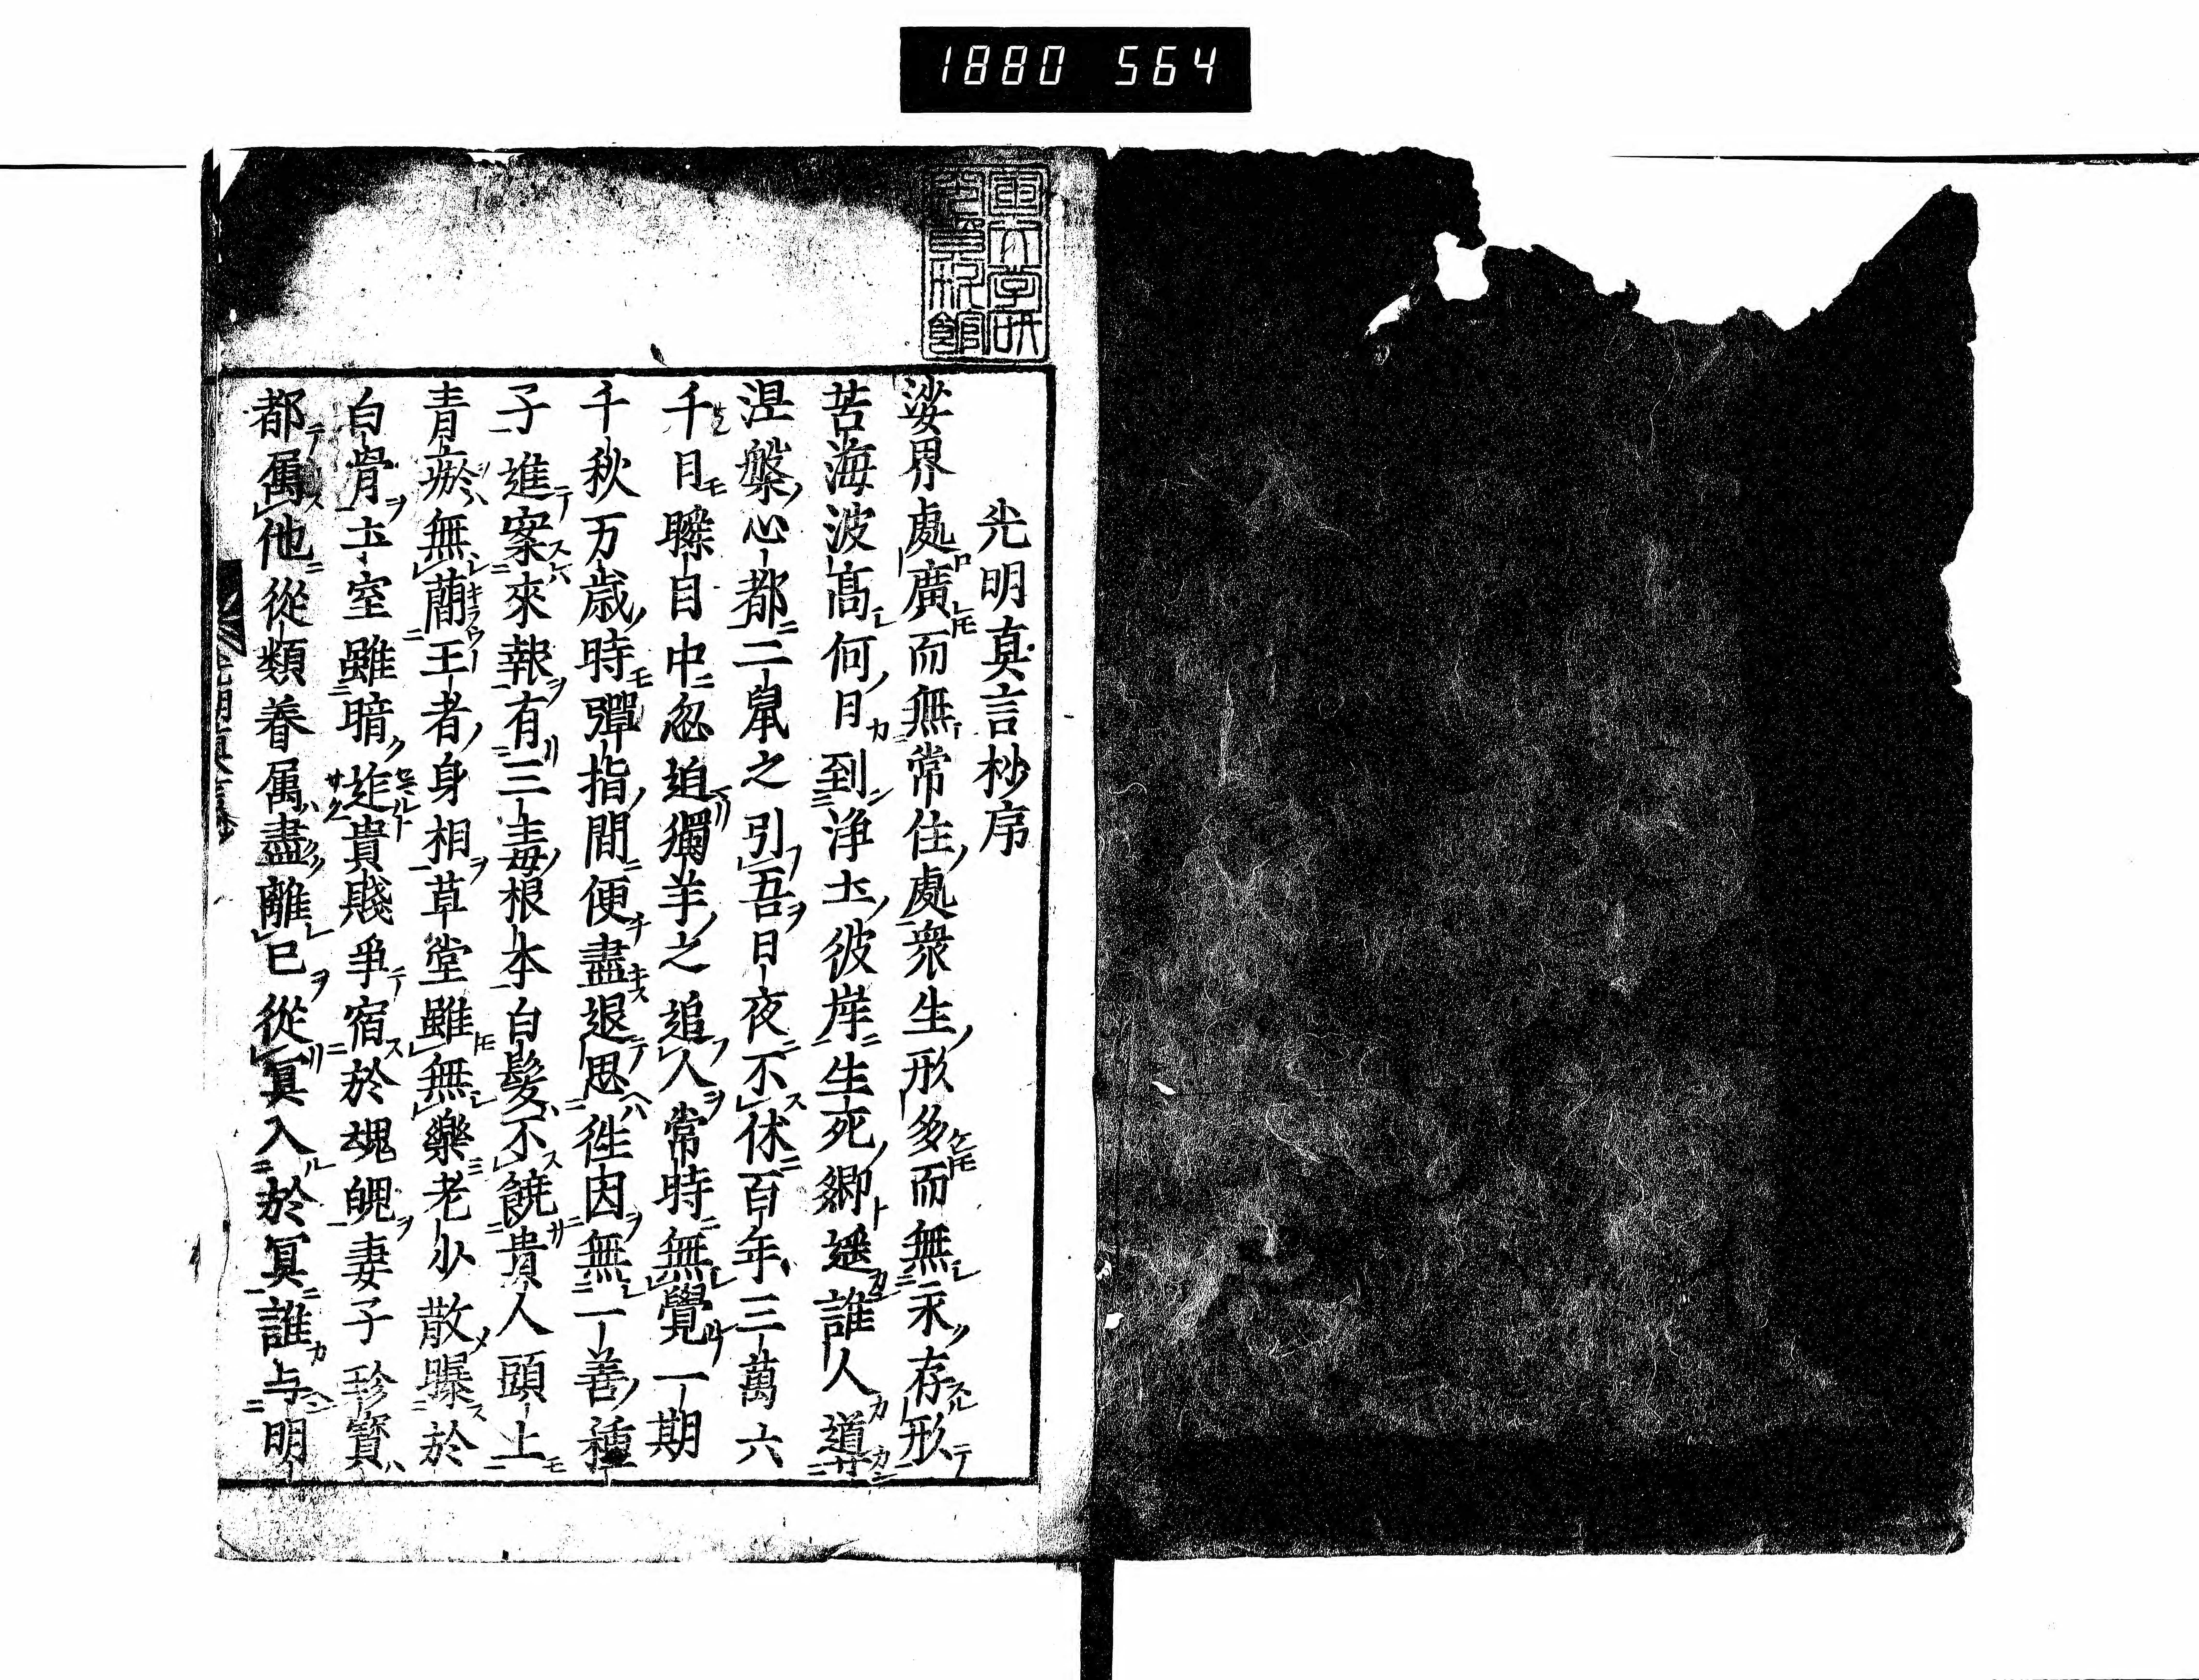 1880 564
光明真言抄序
娑界處廣而無常住處衆生形多而無永存形
苦海波高何日到浄土彼岸生死郷遥誰人道
涅槃心都二鼠之引吾日夜不休百年三萬六
千日瞭目中忽迫獨羊之追人常時無覺一期
千秋万歳時彈指間便盡退思徃因無一善種
子進案來報有三毒根本白髪不饒貴人頭上
青瘀無蕳王者身相草堂雖無樂老少散曝於
白骨土室雖暗迮貴賤爭宿於魂魄妻子珍寳
都属他從類眷属盡離已從冥入於冥誰与明